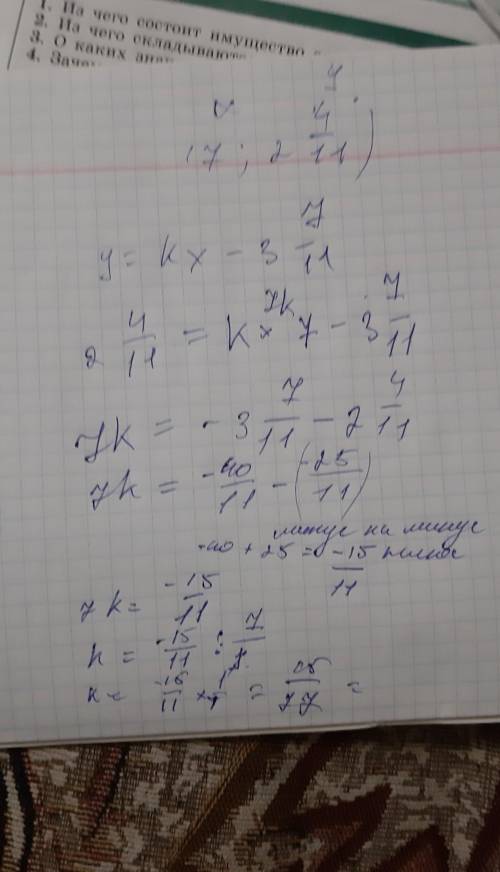 1. Из чего состоит имущество
2. Из чего складывают
3. О каких
4. Заче
x y
(7; 2 4/11)
y = kx - 3 7/11
7k
2 4/11 = k × 7 - 3 7/11
7k = -3 7/11 - 2 4/11
7k = -40/11 - (-25/11)
минус на минус
-40 + 25 = -15/11 плюс
7k = -15/11
k = -15/11 : 7/1
k = -15/11 × 1/7 = 15/77 =